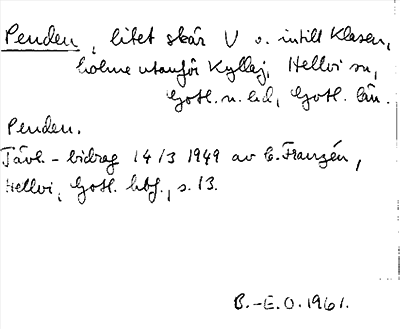 Penden, litet skär V o. intill Klasen,
holme utanför Kyllej, Hellvi sn,
Gotl. n. hd, Gotl. län.
Penden.
Tävl.-bidrag 14/3 1949 av E. Franzén,
Hellvi, Gotl. hbf., s. 13.
B.-E.O. 1961.